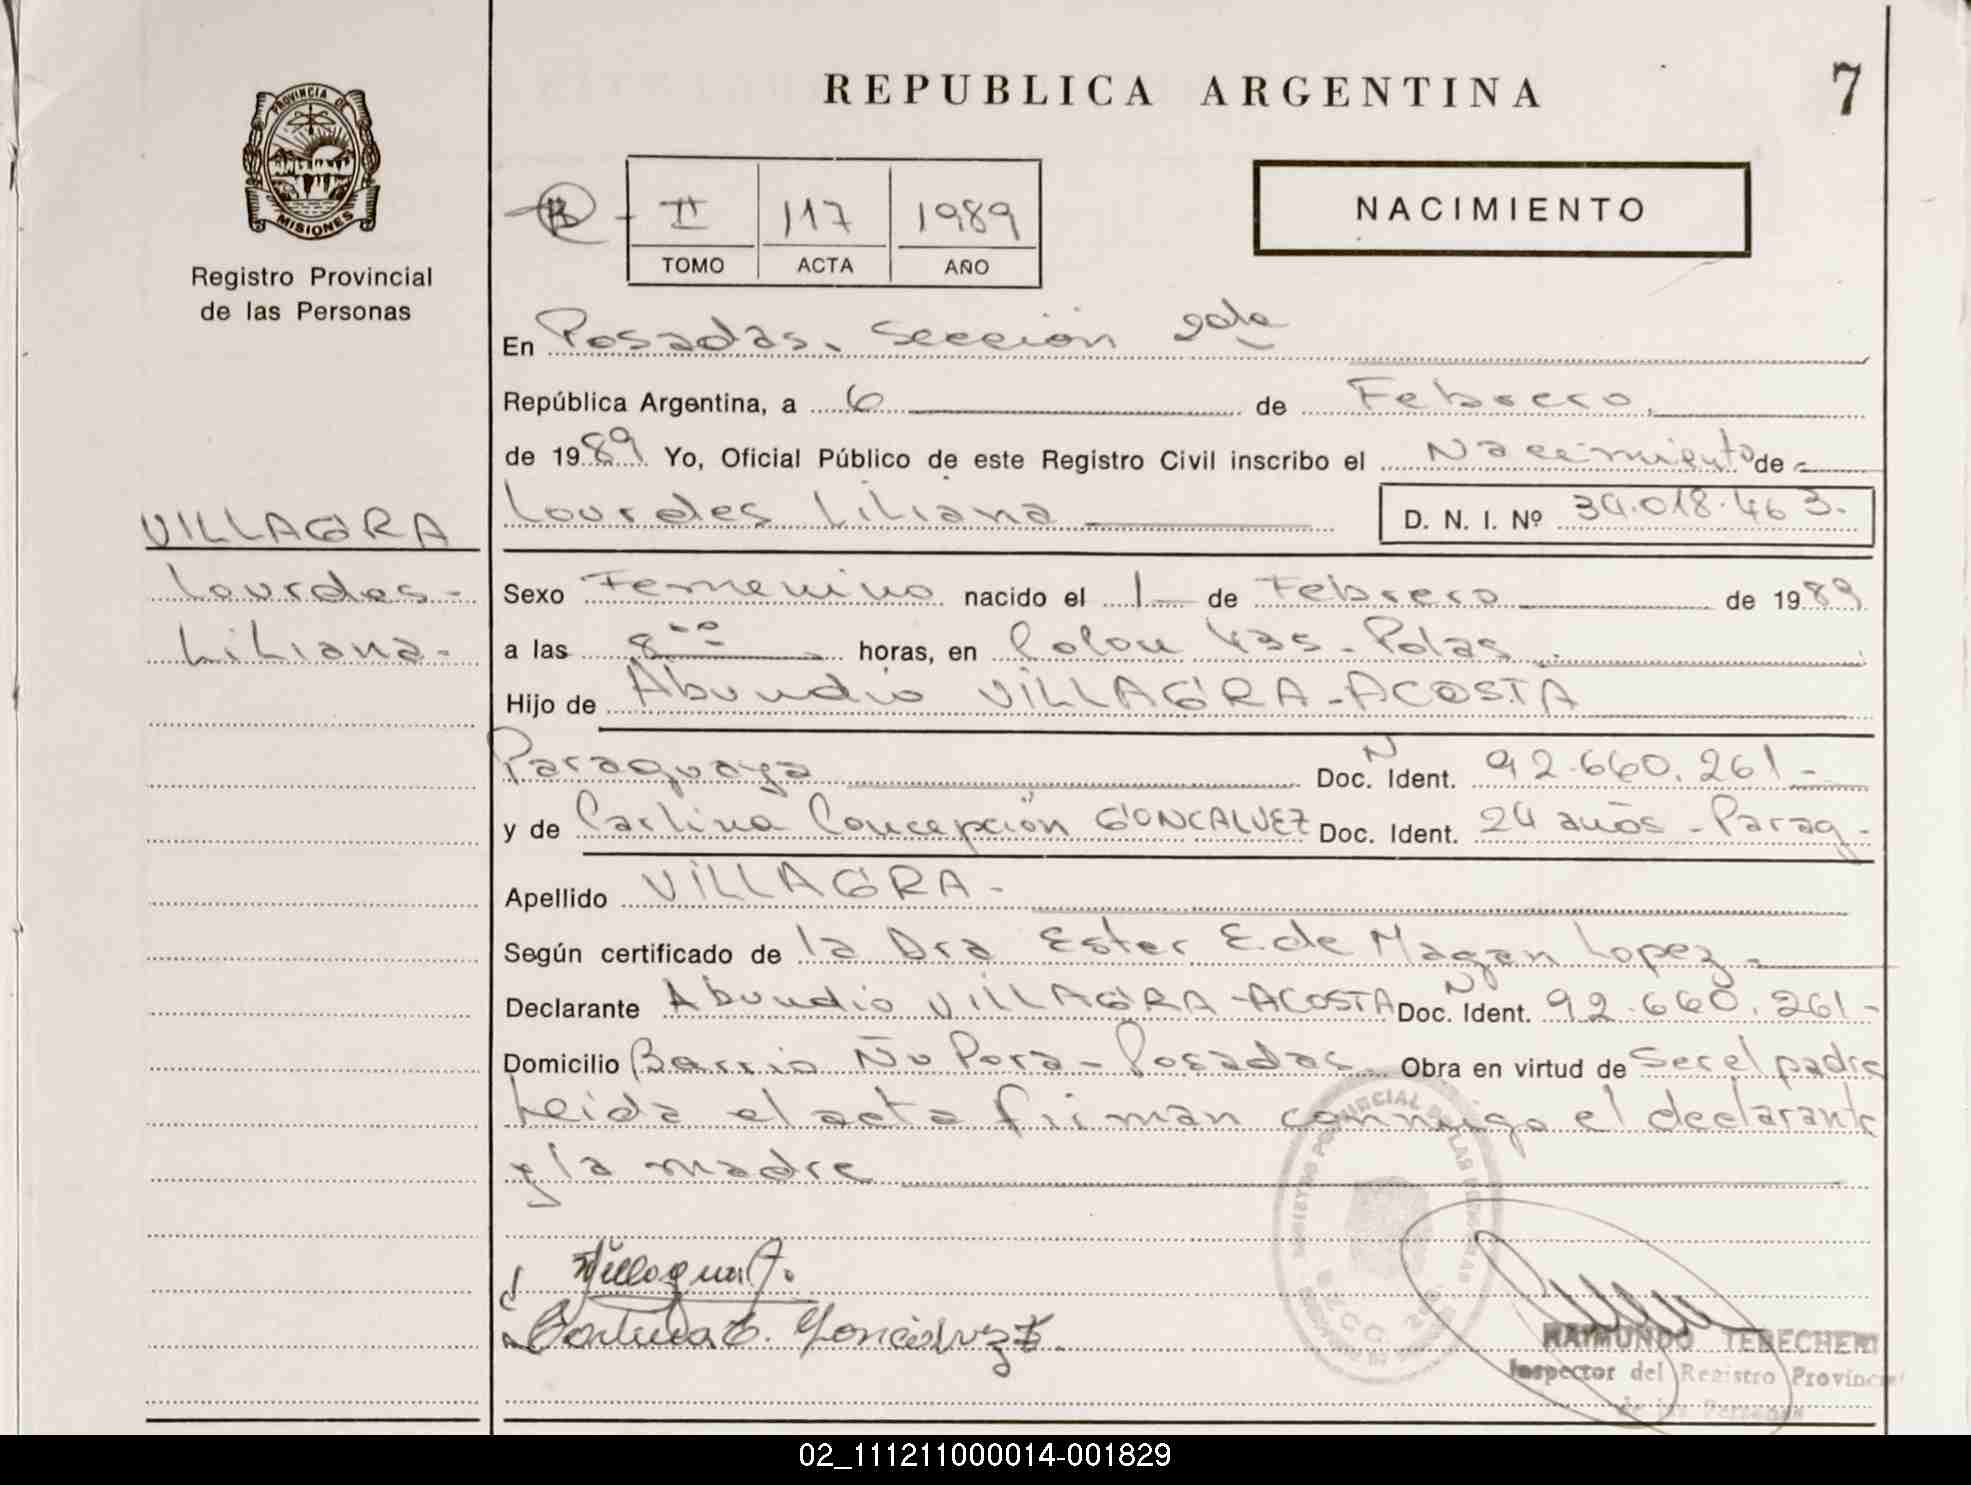 REPUBLICA ARGENTINA
7
PROVINCIA DE
MISIONES
Registro Provincial
de las Personas
II 117 1989
TOMO ACTA AÑO
NACIMIENTO
En Posadas. Sección 2da
República Argentina, a 6 de Febrero.
de 1989 Yo, Oficial Público de este Registro Civil inscribo el Nacimiento de
Lourdes Liliana D. N. I. Nº 34.018.463.
VILLAGRA
Lourdes-
Liliana-
Sexo Femenino nacido el 1 de Febrero de 1989
a las 8 horas, en Colon 435 - Pdas
Hijo de Abundio VILLAGRA-ACOSTA
Paraguaya Doc. N Ident. 92.660.261-
y de Carlina Concepción GONCALVEZ Doc. Ident. 24 años - Parag-
Apellido VILLAGRA-
Según certificado de la Dra Ester E. de Magan Lopez-
Declarante Abundio VILLAGRA-ACOSTA Doc. N Ident. 92.660.261-
Domicilio Barrio Ñu Pora - Posadas. Obra en virtud de Ser el padre
Leida el acta firman conmigo el declarante
y la madre
RAIMUNDO TEBECHERI
Inspector del Registro Provincial
de las Personas
02_111211000014-001829